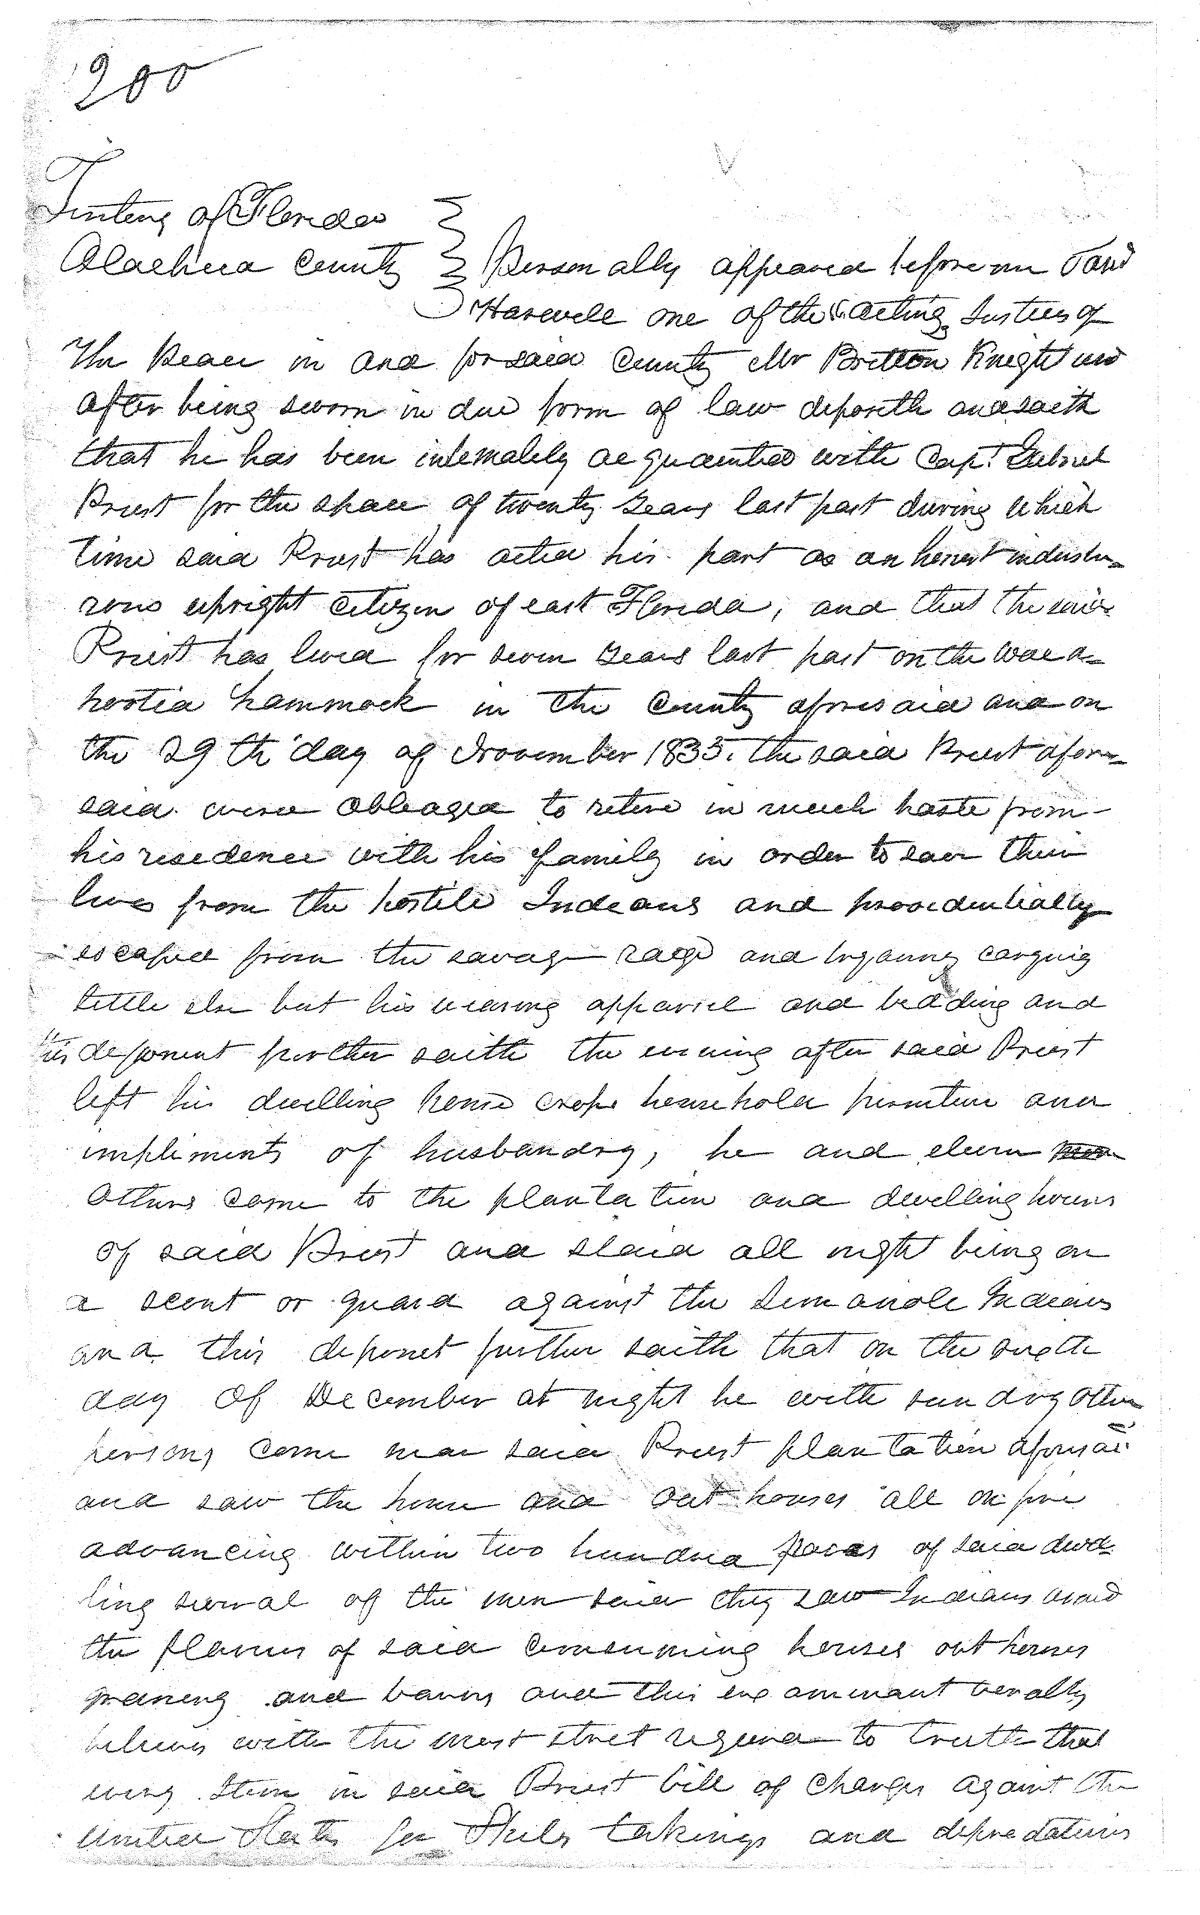 200
Teritory of Florida
Alachua County } Personally appeared before me
Harwell one of the acting Justices of
The Peace in and for said County Mr Britton Knight and
after being sworn in due form of law deposeth and saith
that he has been intemately acquainted with Capt. Gabriel
Priest for the space of twenty years last past during which
time said Priest has acted his part as an honest industu=
rous upright citizen of east Florida, and that the said
Priest has lived for seven years last past on the Waca=
hootia hammock in the County aforesaid and on
the 29th day of November 1835. the said Priest afore=
said were obleaged to retire in much haste from
his resedence with his family in order to save their
lives from the hostile Indeans and providentially
escaped from the savage rage and carying
little else but his wearing apparel and bedding and
this deponent further saith the evening after said Priest
left his dwelling house crops household furniture and
impliments of husbandry, he and eleven
others came to the plantation and dwelling houses
of said Priest and staid all night being on
a scout or guard against the Semanole Indians
and this deponet further saith that on the sixth
day of December at night he with sundry other
persons came near said Priest plantation aforsaid
and saw the house and out houses all on fire
advancing within two hundred paces of said dwel=
ling several of the men said they saw Indians
the flames of said consuming houses out houses
granery and barns and this examinant verally
believes with the most strict regard to truth that
every Item in said Priest bill of charges against the
United States for takings and depredations